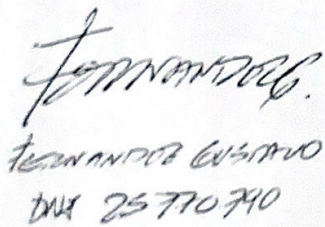 Fernandez G.
FERNANDEZ GUSTAVO
DNI 25770790